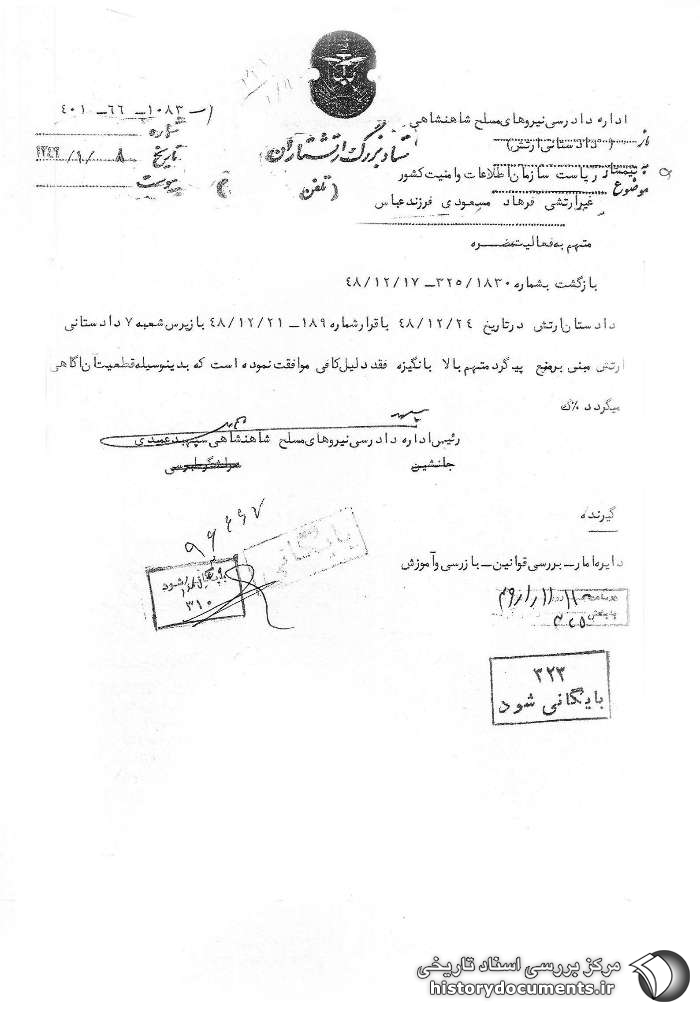 ستاد بزرگ ارتشتاران
(تلفن )
۱ـ ۱۰۸۳ـ ۶۶ـ ۴۰۱
شماره
تاریخ ۸ /۱/
پیوست
اداره دادرسی نیروهای مسلح شاهنشاهی
از (دادستانی ارتش)
به تیمسار ریاست سازمان اطلاعات و امنیت کشور
موضوع غیرارتشی فرهاد مسعودی فرزند عباس
متهم به فعالیت مضره
بازگشت بشماره ۳۲۵/۱۸۳۰ـ ۴۸/۱۲/۱۷
دادستان ارتش در تاریخ ۴۸/۱۲/۲۴ با قرار شماره ۱۸۹ـ ۴۸/۱۲/۲۱ بازپرس شعبه ۷ دادستانی
ارتش مبنی بر منع پیگرد متهم بالا بانگیزه فقد دلیل کافی موافقت نموده است که بدینوسیله قطعیت آن آگاهی
میگردد /ک
رئیس اداره دادرسی نیروهای مسلح شاهنشاهی سپهبد عمیدی
جانشین سرلشگر طبرسی
گیرنده
دایره آمار ـ بررسی قوانین ـ بازرسی و آموزش
بایگانی
شود
۳۱۰
۳۲۳
بایگانی شود
مرکز بررسی اسناد تاریخی
historydocuments.ir